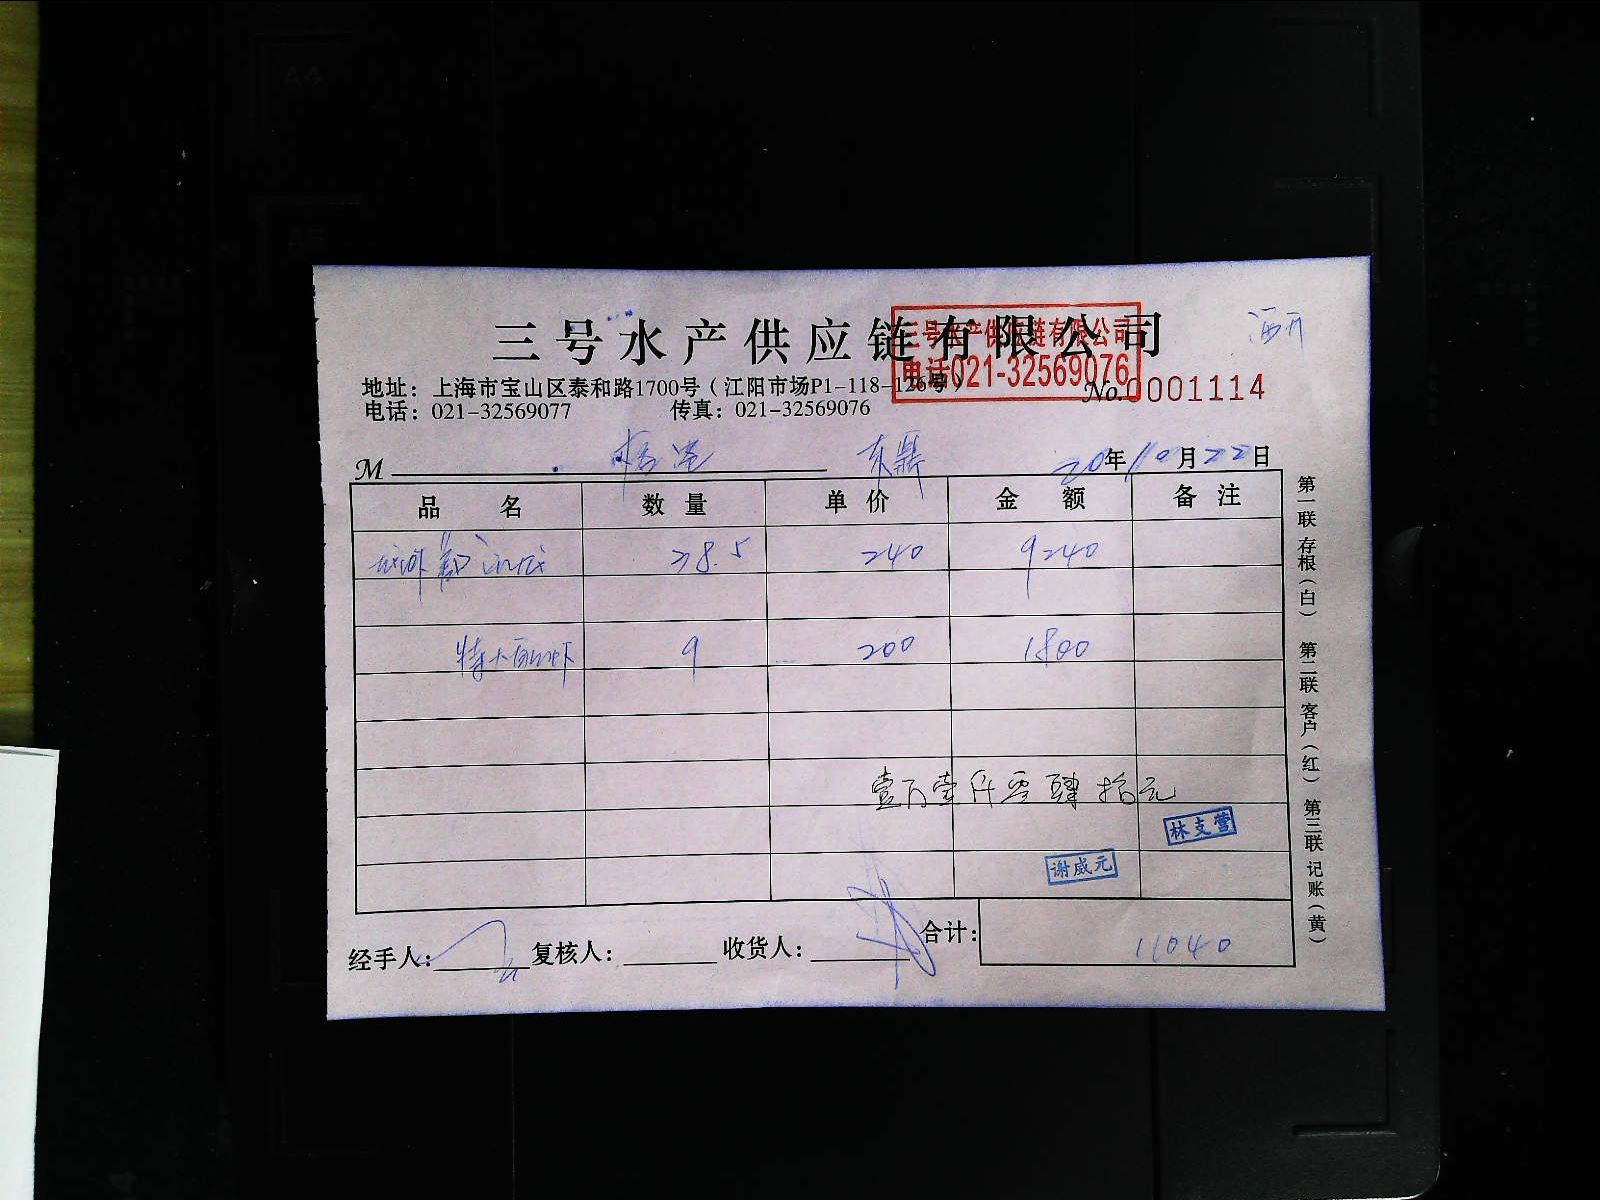 三号水产供应链有限公司
三号水产供应链有限公司
电话021-32569076
地址：上海市宝山区泰和路1700号（江阳市场P1-118-126号）
电话：021-32569077 传真：021-32569076
No.0001114
M 东鼎 20年10月22日
品名 数量 单价 金额 备注
38.5 240 9240
特大 虾 9 200 1800
壹万壹仟零肆拾元
林支营
谢威元
经手人： 复核人： 收货人： 合计： 11040
第一联 存根（白） 第二联 客户（红） 第三联 记账（黄）
A4
A5